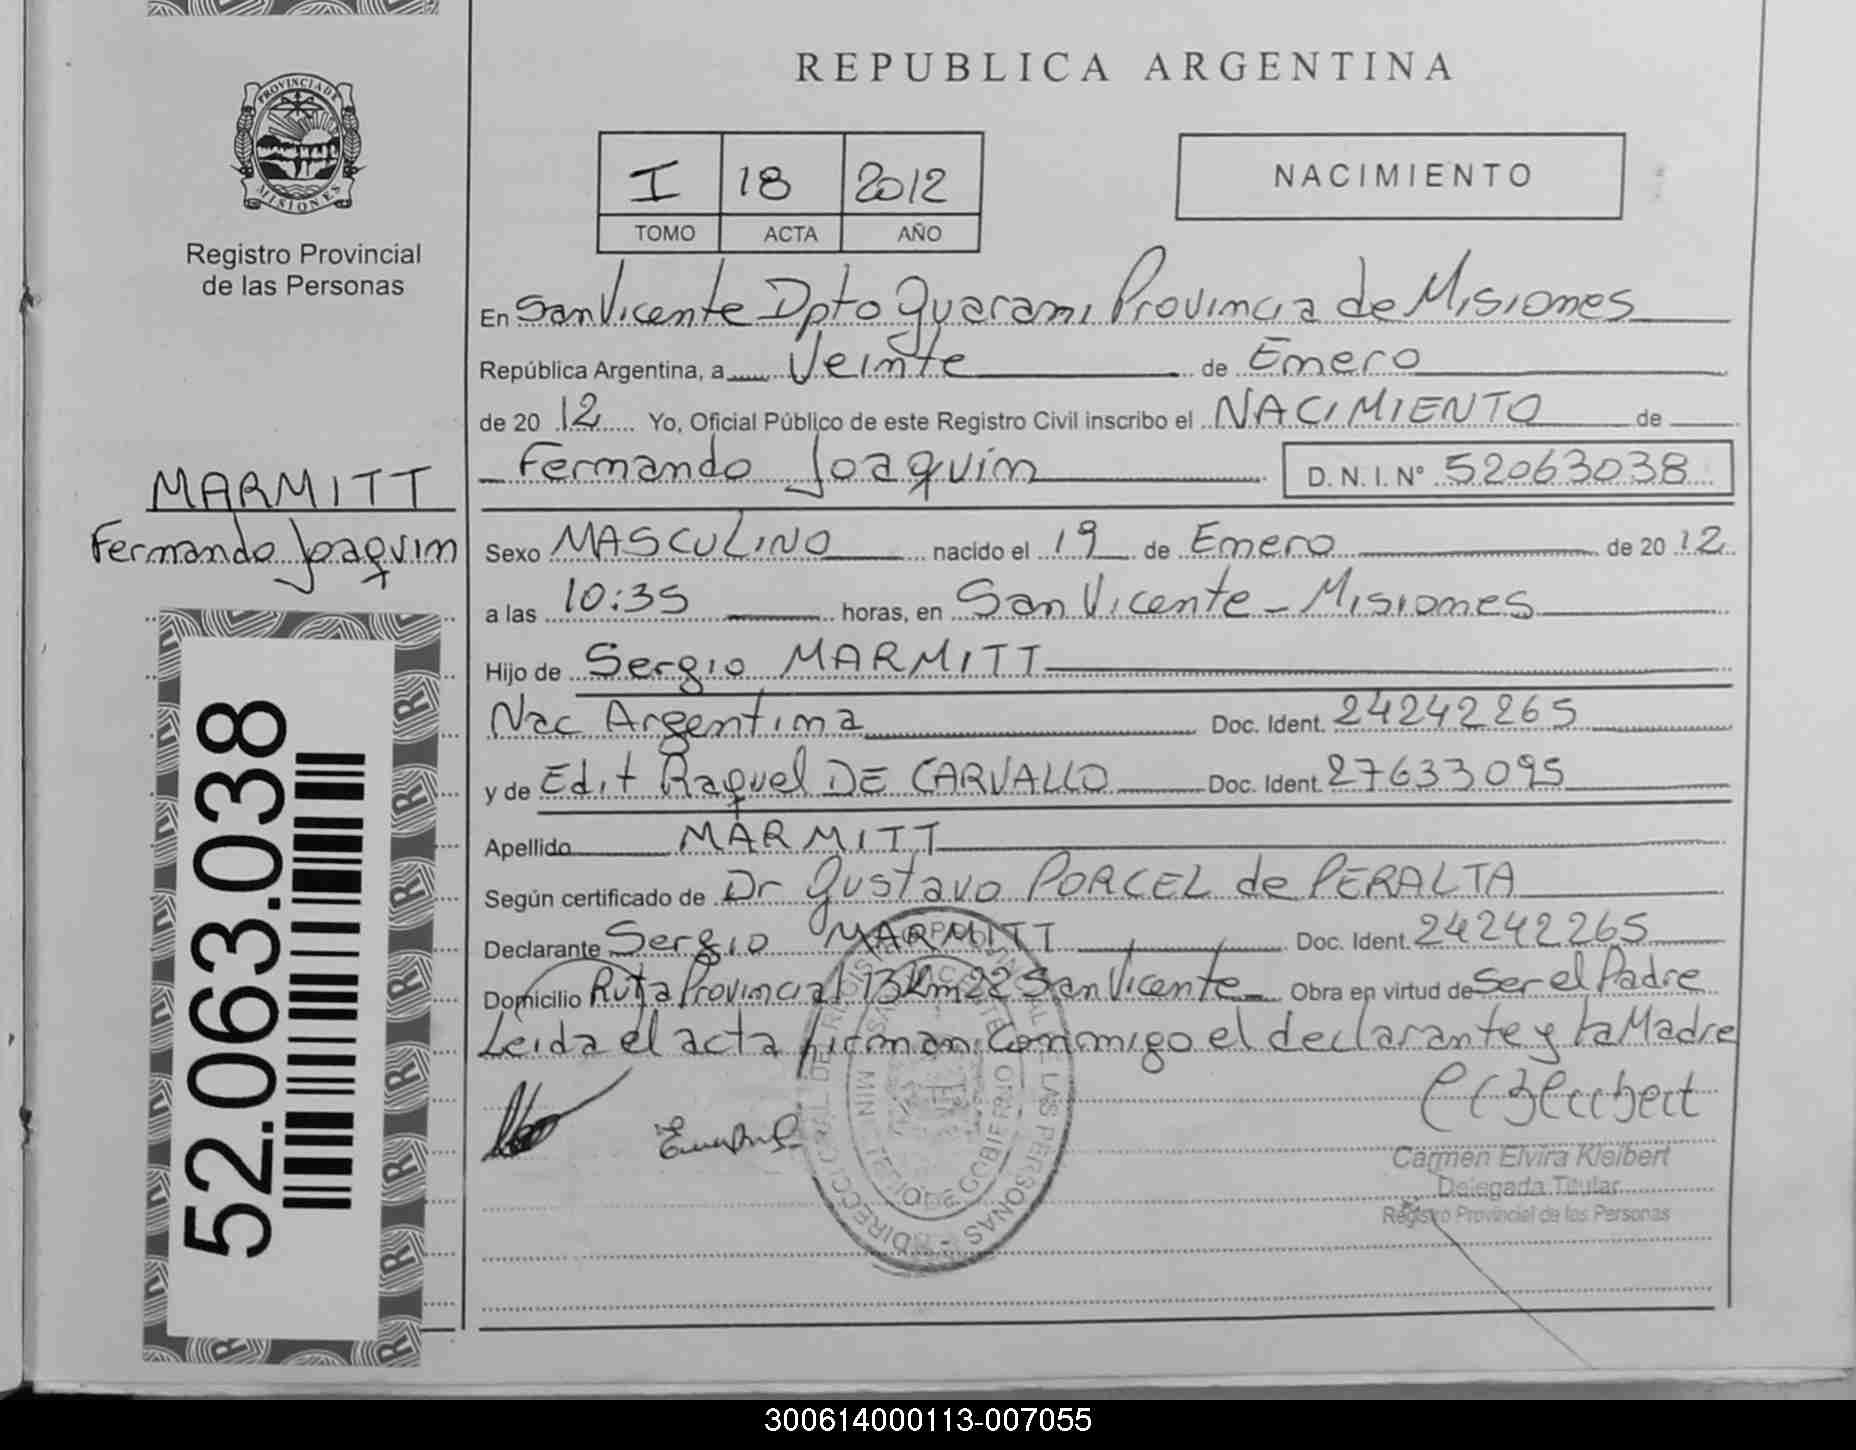 PROVINCIA DE
MISIONES
Registro Provincial
de las Personas
MARMITT
Fernando Joaquin
52.063.038
REPUBLICA ARGENTINA
I 18 2012
TOMO ACTA AÑO
NACIMIENTO
En San Vicente Dpto Guarani Provincia de Misiones
República Argentina, a Veinte de Enero
de 20 12 Yo, Oficial Público de este Registro Civil inscribo el NACIMIENTO de
Fernando Joaquin D.N.I. Nº 52063038
Sexo MASCULINO nacido el 19 de Enero de 20 12
a las 10:35 horas, en San Vicente - Misiones
Hijo de Sergio MARMITT
Nac Argentina Doc. Ident. 24242265
y de Edit Raquel DE CARVALLO Doc. Ident. 27633095
Apellido MARMITT
Según certificado de Dr Gustavo PORCEL de PERALTA
Declarante Sergio MARMITT Doc. Ident. 24242265
Domicilio Ruta Provincial 13 Km 22 San Vicente Obra en virtud de Ser el Padre
Leida el acta firman Conmigo el declarante y la Madre
Carmen Elvira Kleibert
Delegada Titular
Registro Provincial de las Personas
300614000113-007055